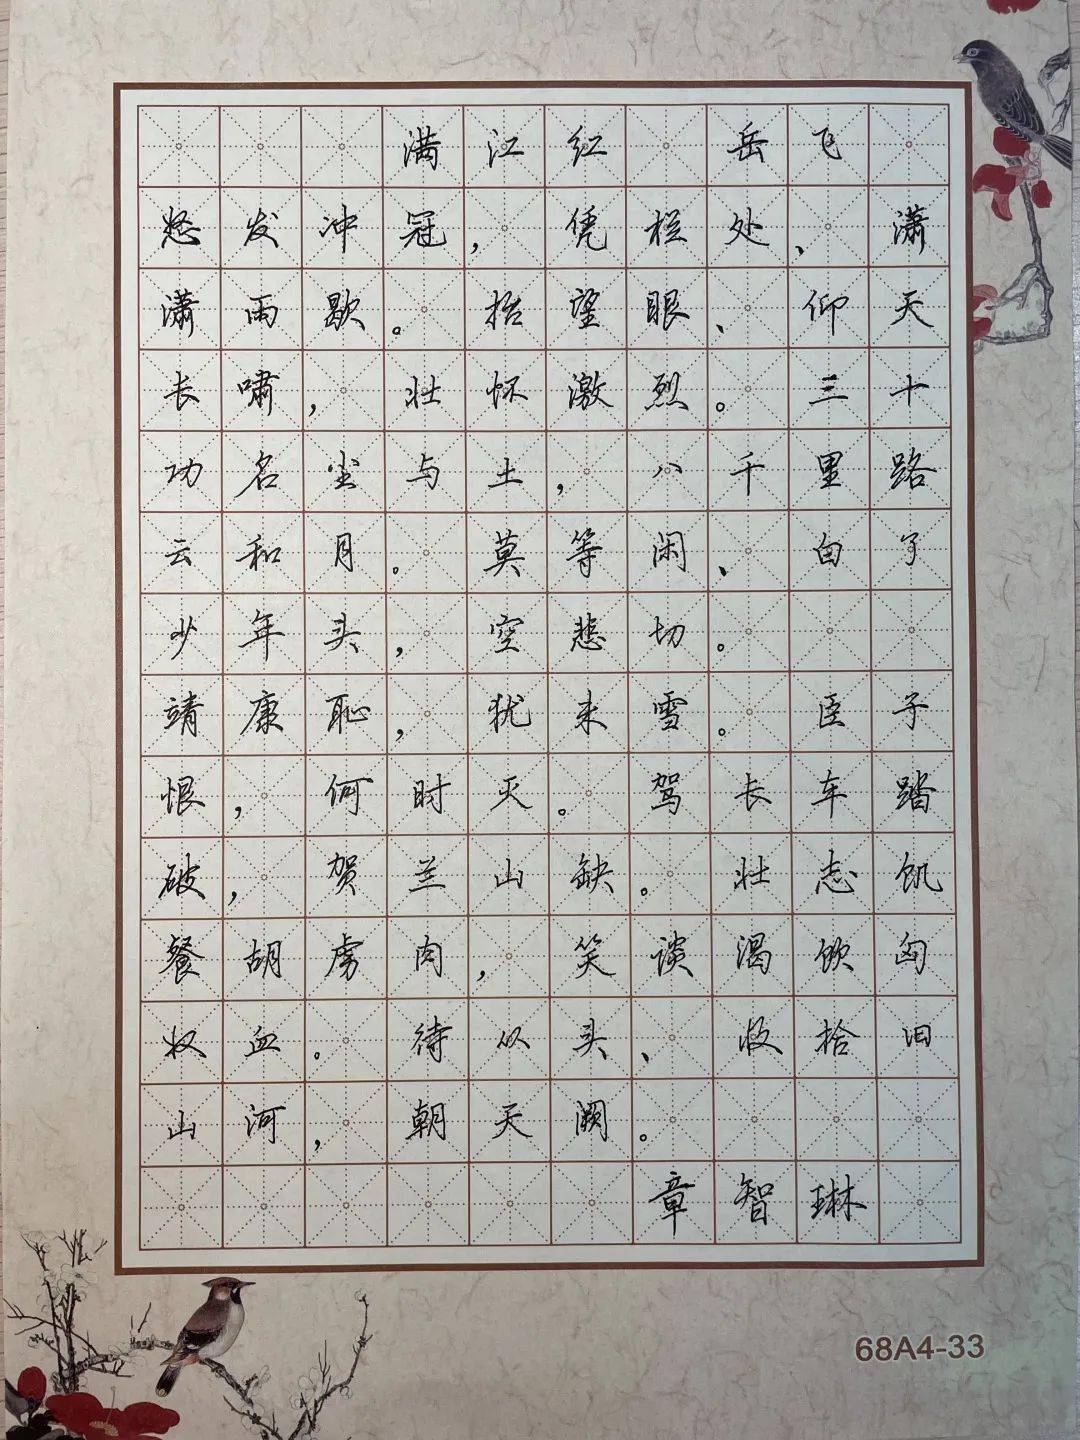 满江红 岳飞
怒发冲冠，凭栏处、潇
潇雨歇。抬望眼、仰天
长啸，壮怀激烈。三十
功名尘与土，八千里路
云和月。莫等闲、白了
少年头，空悲切。
靖康耻，犹未雪。臣子
恨，何时灭。驾长车踏
破，贺兰山缺。壮志饥
餐胡虏肉，笑谈渴饮匈
奴血。待从头、收拾旧
山河，朝天阙。
章智琳
68A4-33